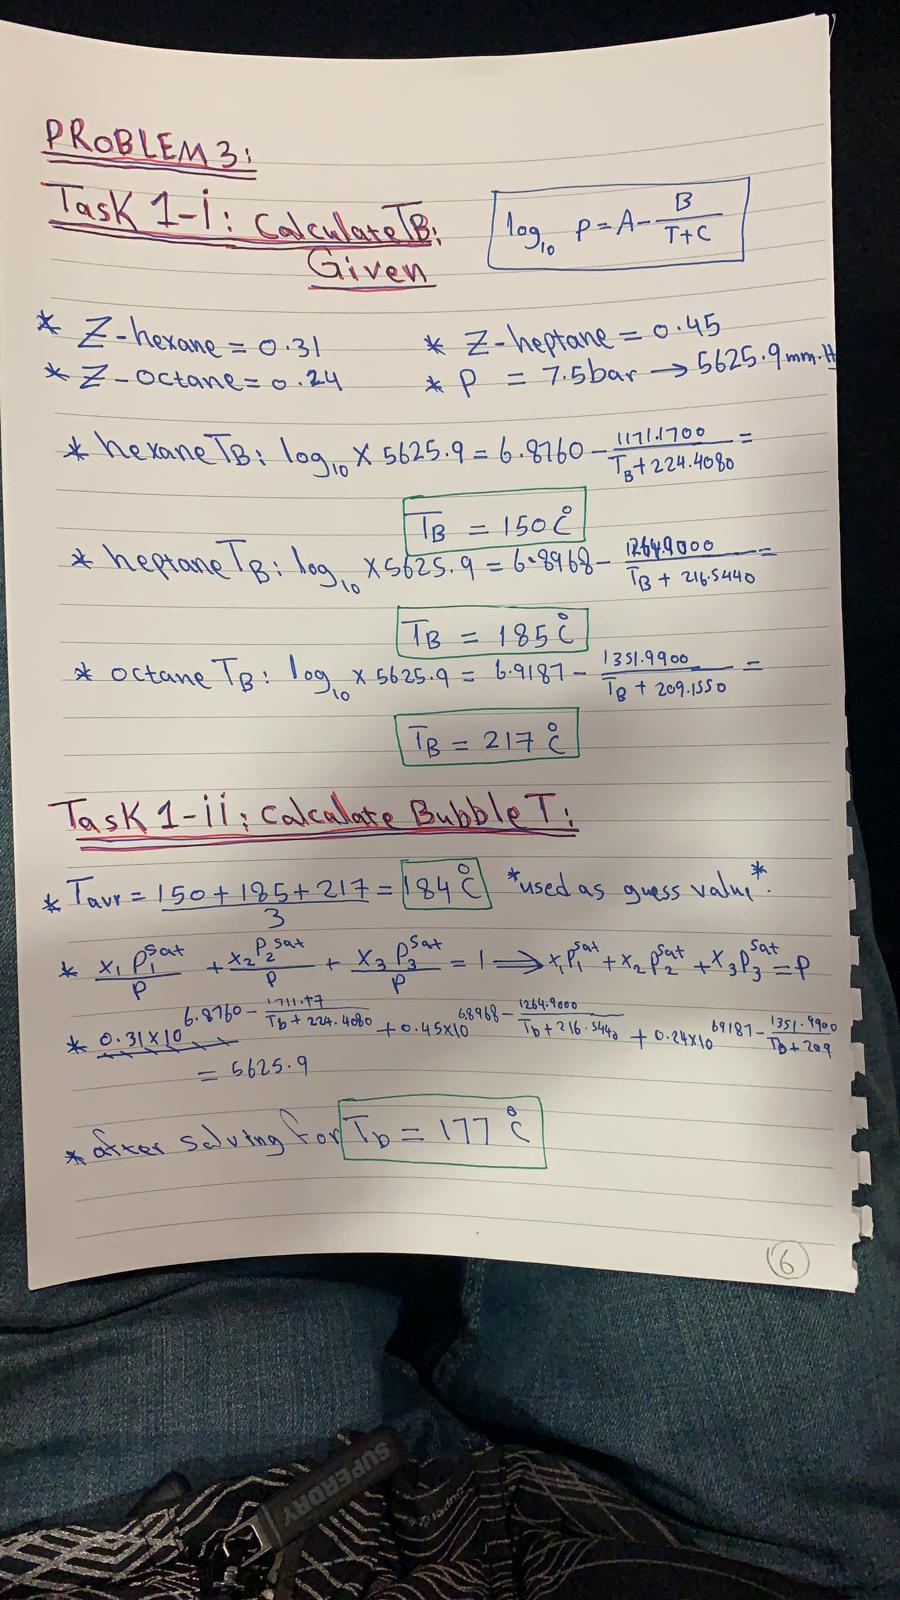 PROBLEM 3:
Task 1-i: Calculate TB:
log10 P = A - B / T+C
Given
* Z-hexane = 0.31 * Z-heptane = 0.45
* Z-octane = 0.24 * P = 7.5bar → 5625.9 mm.H
* hexane TB: log10 × 5625.9 = 6.8760 - 1171.1700 / TB + 224.4080 =
TB = 150 °C
* heptane TB: log10 × 5625.9 = 6.8968 - 1264.9000 / TB + 216.5440 =
TB = 185 °C
* octane TB: log10 × 5625.9 = 6.9187 - 1351.9900 / TB + 209.1550 =
TB = 217 °C
Task 1-ii: Calcalate Bubble T:
* Tavr = 150 + 185 + 217 / 3 = 184 °C *used as guess value*.
* x1 P1sat / P + x2 P2sat / P + x3 P3sat / P = 1 ⟹ x1P1sat + x2P2sat + x3P3sat = P
* 0.31 × 10^6.8760 - 1711.17 / Tb + 224.4080 + 0.45 × 10^6.8968 - 1264.9000 / Tb + 216.5440 + 0.24 × 10^69187 - 1351.9900 / TB + 209
= 5625.9
* after solving for Tb = 177 °C
6
SUPERDRY